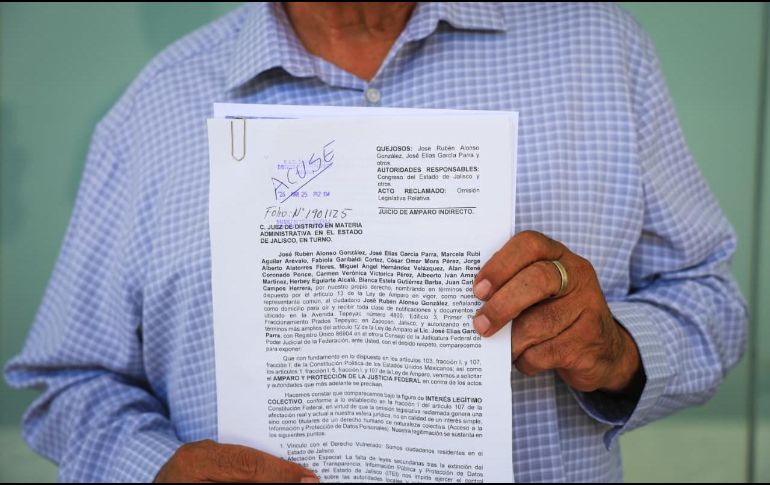 QUEJOSOS: José Rubén Alonso
González, José Elías García Parra y
otros
AUTORIDADES RESPONSABLES:
Congreso del Estado de Jalisco y
otros.
ACTO RECLAMADO: Omisión
Legislativa Relativa.
JUICIO DE AMPARO INDIRECTO.
ACUSE
25 P12:04
Folio: Nº 1901125
C. JUEZ DE DISTRITO EN MATERIA
ADMINISTRATIVA EN EL ESTADO
DE JALISCO, EN TURNO.
José Rubén Alonso González, José Elías García Parra, Marcela Rubí
Aguilar Arévalo, Fabiola Garibaldi Cortez, César Omar Mora Pérez, Jorge
Alberto Alatorres Flores, Miguel Ángel Hernández Velázquez, Alan René
Coronado Ponce, Carmen Verónica Victorica Pérez, Alberto Iván Amay
Martínez, Herbey Eguiarte Alcalá, Bianca Estela Gutiérrez Barba, Juan Carl
Campos Herrera, por nuestro propio derecho, nombrando en términos del
dispuesto por el artículo 13 de la Ley de Amparo en vigor, como nuestro
representante común, al ciudadano José Rubén Alonso González, señalando
como domicilio para oír y recibir toda clase de notificaciones y documentos
ubicado en la Avenida Tepeyac número 4800, Edificio 3, Primer Pi
Fraccionamiento Prados Tepeyac, en Zapopan, Jalisco; y autorizando en
términos más amplios del artículo 12 de la Ley de Amparo al Lic. José Elías Garc
Parra, con Registro Único 86904 en el otrora Consejo de la Judicatura Federal del
Poder Judicial de la Federación, ante Usted, con el debido respeto, comparecemos
para exponer:
Que con fundamento en lo dispuesto en los artículos 103, fracción I, y 107,
fracción I, de la Constitución Política de los Estados Unidos Mexicanos; así como
los artículos 1 fracción I, 5, fracción I, y 107 de la Ley de Amparo, venimos a solicitar
el AMPARO Y PROTECCIÓN DE LA JUSTICIA FEDERAL en contra de los actos
y autoridades que más adelante se precisan.
Hacemos constar que comparecemos bajo la figura de INTERÉS LEGÍTIMO
COLECTIVO, conforme a lo establecido en la fracción I del artículo 107 de la
Constitución Federal, en virtud de que la omisión legislativa reclamada genera una
afectación real y actual a nuestra esfera jurídica, no en calidad de un interés simple,
sino como titulares de un derecho humano de naturaleza colectiva (Acceso a la
Información y Protección de Datos Personales). Nuestra legitimación se sustenta en
los siguientes puntos:
1. Vínculo con el Derecho Vulnerado: Somos ciudadanos residentes en el
Estado de Jalisco.
Afectación Especial: La falta de leyes secundarias tras la extinción del
de Transparencia, Información Pública y Protección de Datos
les del Estado de Jalisco (ITEI) nos impide ejercer el control
sobre las autoridades locales